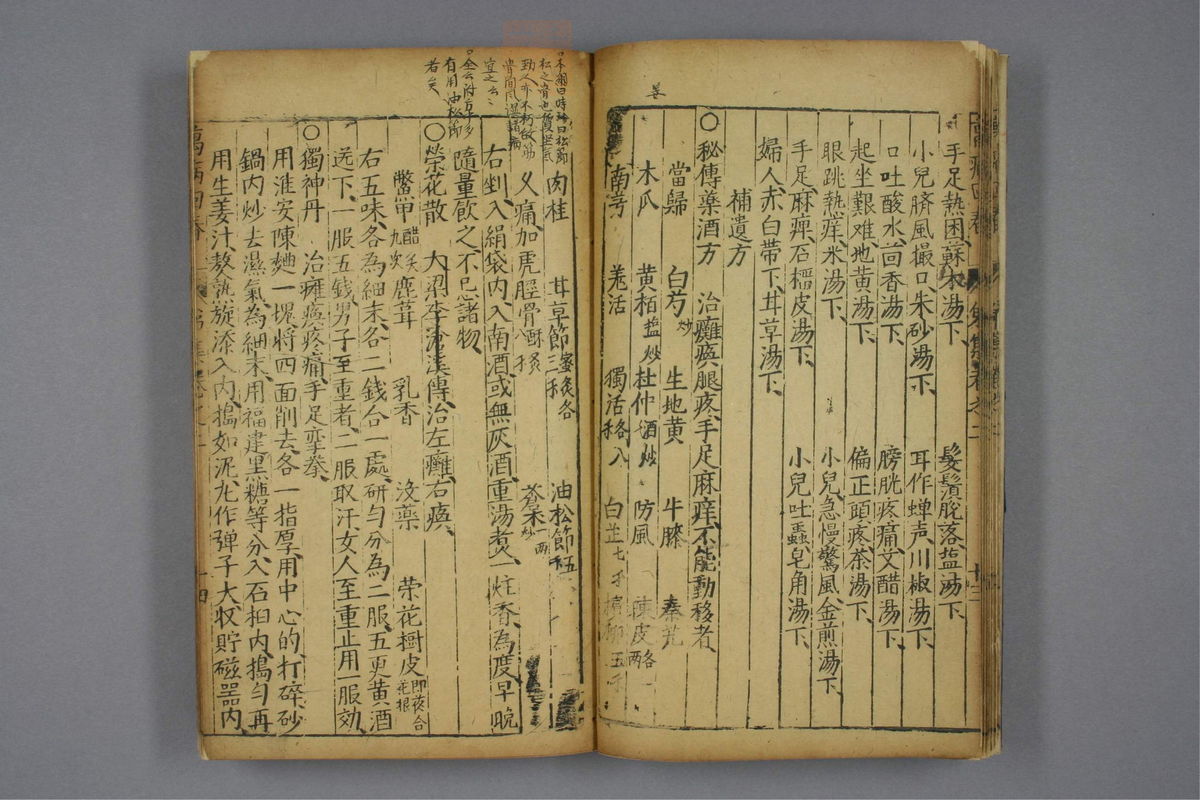 手足熱困、蘇木湯下、 髮鬚脫落塩湯下、
小兒臍風撮口、朱砂湯下、 耳作蟬声、川椒湯下、
口吐酸水、茴香湯下、 膀胱疼痛、文醋湯下、
起坐艱难、地黄湯下、 偏正頭疼、茶湯下、
眼跳熱痒、米湯下、 小兒急慢驚風、金煎湯下、
手足麻痺、石榴皮湯下、 小兒吐蟲、皂角湯下、
婦人赤白帶下、甘草湯下、
補遺方
○秘傳藥酒方 治癱瘓腿疼、手足麻痒、不能動移者、
當歸 白芍炒 生地黄 牛膝 秦艽
木瓜 黄栢塩炒 杜仲酒炒 防風 陳皮各一两
南芎 羌活 獨活各八禾 白芷七禾 檳榔五禾
肉桂 甘草節蜜炙各三禾 油松節五禾
又痛、加虎脛骨酥炙八禾 蒼朮炒一两
右剉入絹袋內、入南酒、或無灰酒、重湯煮一炷香為度、早晚
隨量飲之、不忌諸物、
○榮花散 大梁李滄溪傳、治左癱右瘓、
鱉甲醋炙九次 鹿茸 乳香 没藥 榮花樹皮即夜合花根
右五味、各為細末、各二錢、合一處、研匀、分為二服、五更黄酒
送下、一服五錢、男子至重者、二服取汗、女人至重、止用一服効、
○獨神丹 治癱瘓疼痛、手足攣拳、
用淮安陳麯一塊、將四面削去、各一指厚、用中心的、打碎、砂
鍋內炒去濕氣、為細末、用福建黑糖等分、入石桕內、搗匀、再
用生姜汁、熬熟、旋添入內、搗如泥、丸作弹子大、収貯磁器內、